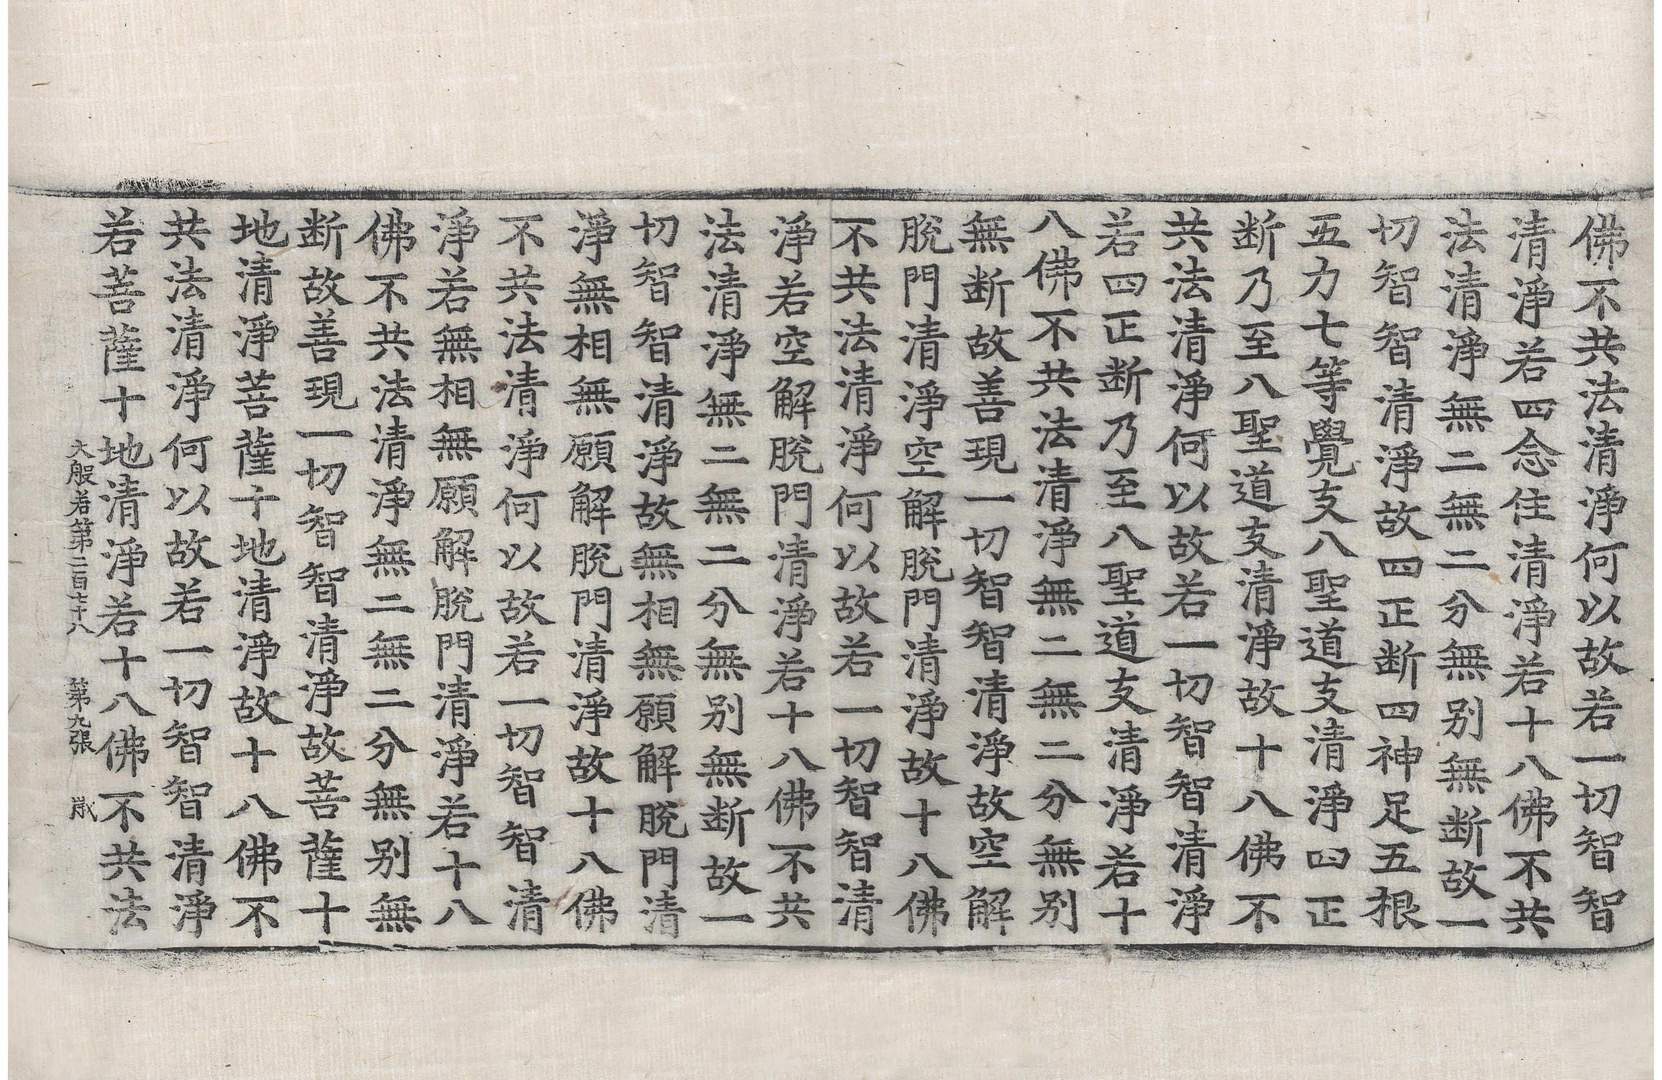 佛不共法清淨何以故若一切智智
清淨若四念住清淨若十八佛不共
法清淨無二無二分無别無断故一
切智智清淨故四正断四神足五根
五力七等覺支八聖道支清淨四正
断乃至八聖道支清淨故十八佛不
共法清淨何以故若一切智智清淨
若四正断乃至八聖道支清淨若十
八佛不共法清淨無二無二分無别
無断故善現一切智智清淨故空解
脫門清淨空解脫門清淨故十八佛
不共法清淨何以故若一切智智清
淨若空解脫門清淨若十八佛不共
法清淨無二無二分無别無断故一
切智智清淨故無相無願解脫門清
淨無相無願解脫門清淨故十八佛
不共法清淨何以故若一切智智清
淨若無相無願解脫門清淨若十八
佛不共法清淨無二無二分無别無
断故善現一切智智清淨故菩薩十
地清淨菩薩十地清淨故十八佛不
共法清淨何以故若一切智智清淨
若菩薩十地清淨若十八佛不共法
大般若第二百七十八　第九張　歲